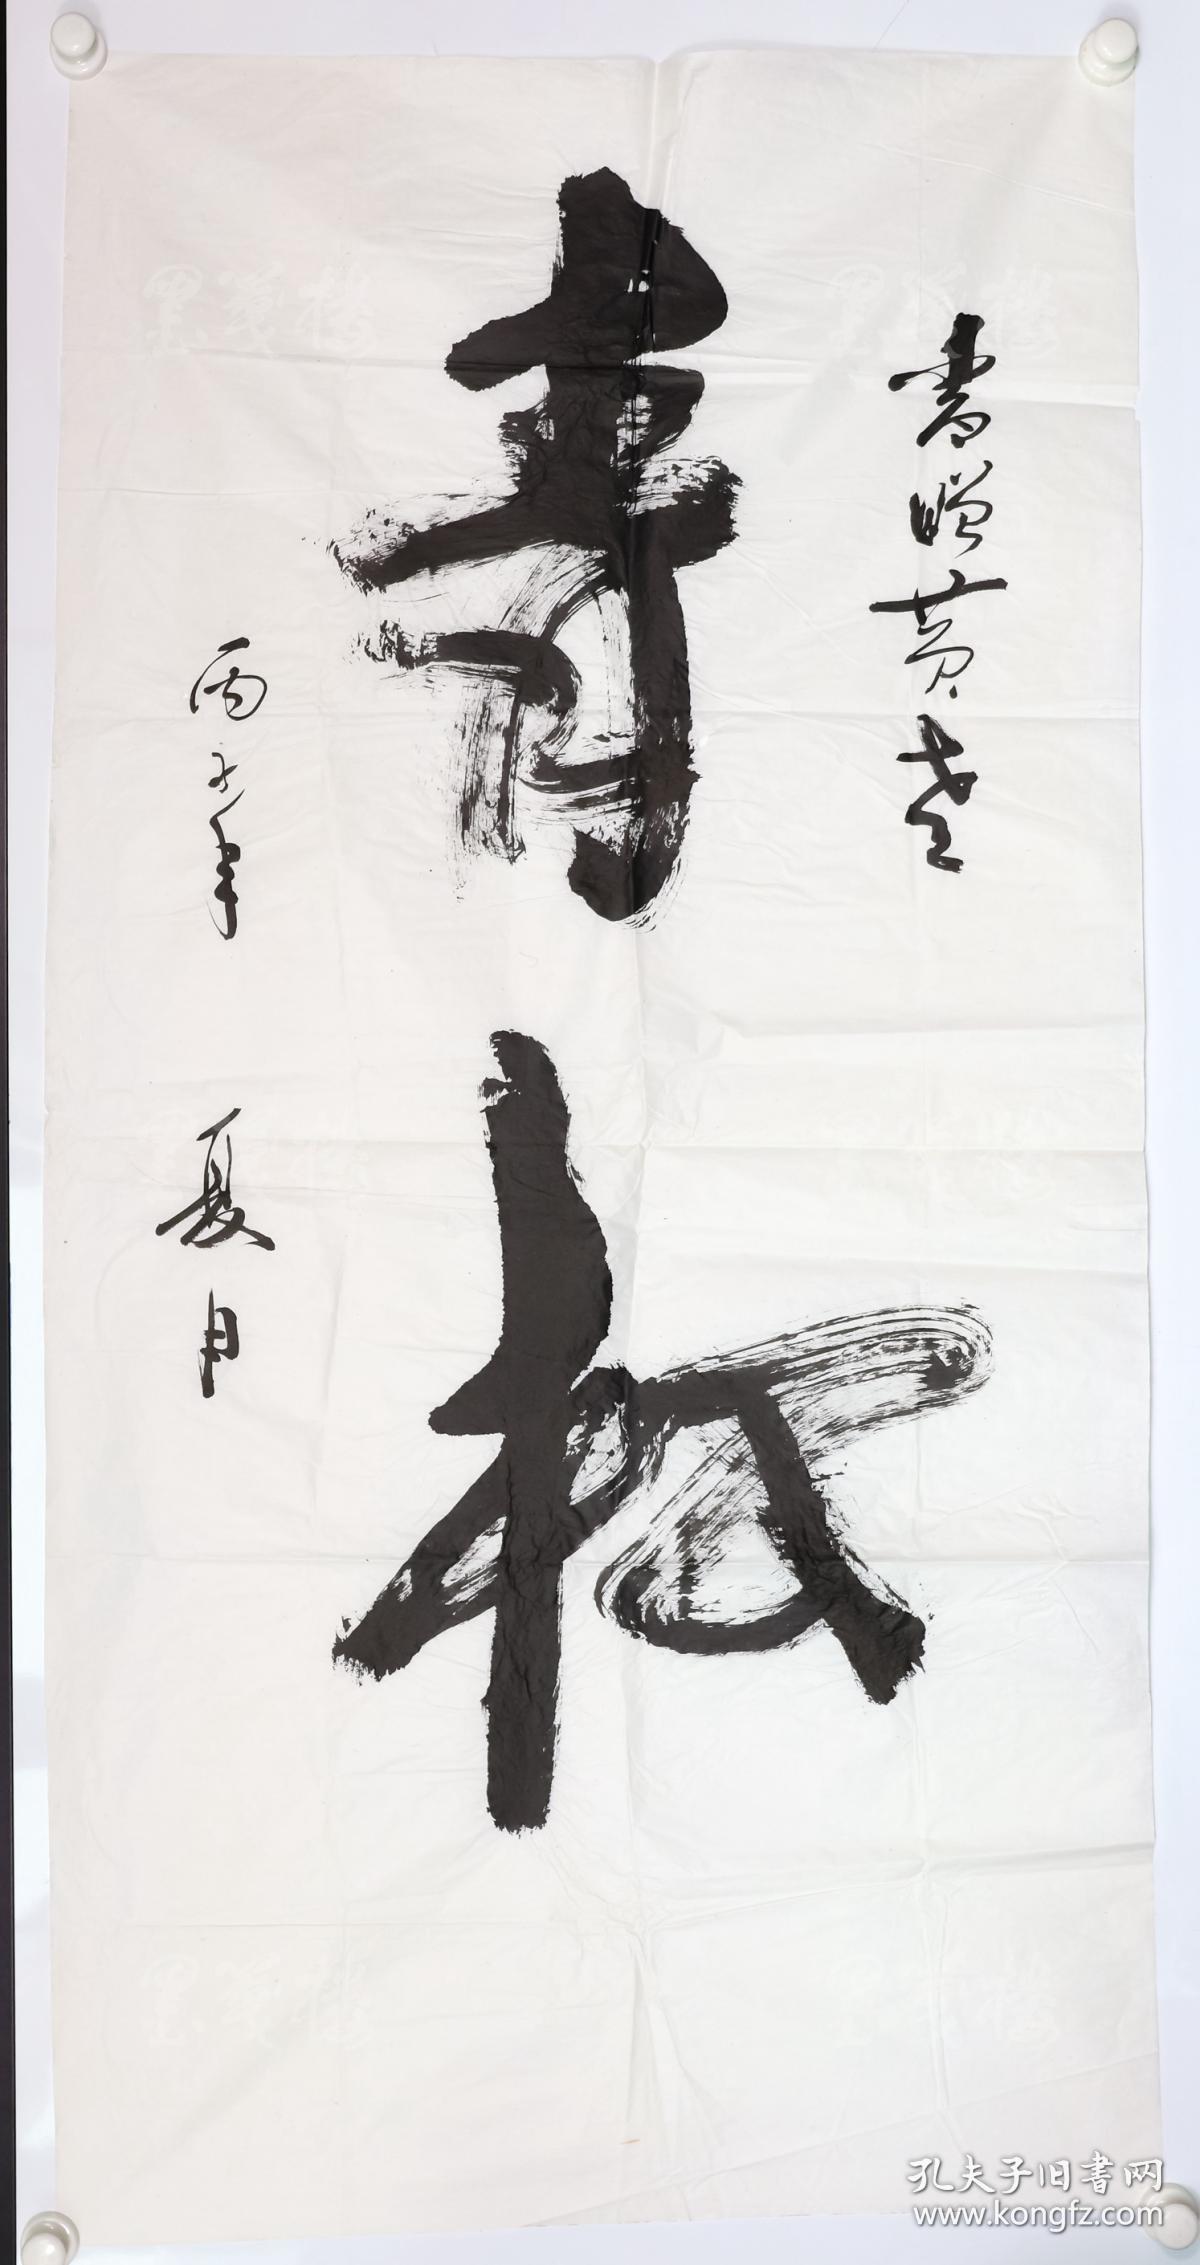 书赠黄老
青松
丙子年 夏日
孔夫子旧书网
www.kongfz.com